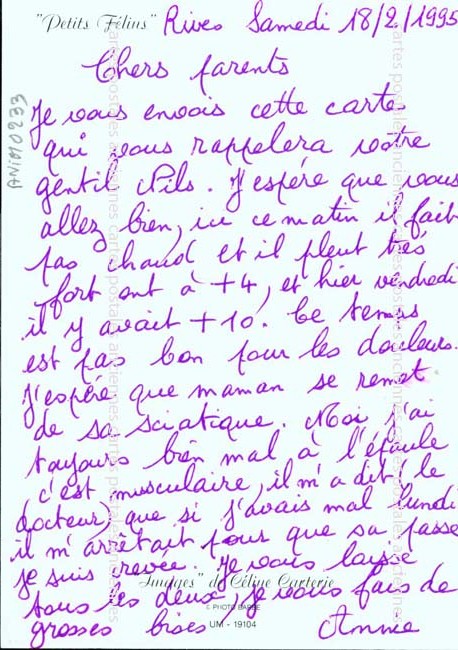 "Petits Félins" Rives Samedi 18/2/1995
Chers parents
Je vous envois cette carte
qui vous rappelera votre
gentil Nils. J'espére que vous
allez bien, ici ce matin il fait
pas chaud et il pleut trés
fort ont à +4, et hier vendredi
il y avait +10. Ce temps
est pas bon pour les douleurs.
J'espére que maman se remet
de sa sciatique. Moi j'ai
toujour bien mal à l'épaule
c'est musculaire, il m'a dit (le
docteur) que si j'avais mal lundi
il m'arrêtait pour que sa passe
je suis crevée. Je vous laisse
"Images" de Céline Carterie
tous les deux, je vous fais de
© PHOTO BARBE
grosses bises Annie
UM - 19104
ANIM0233
cartes postales anciennes cartes postales anciennes